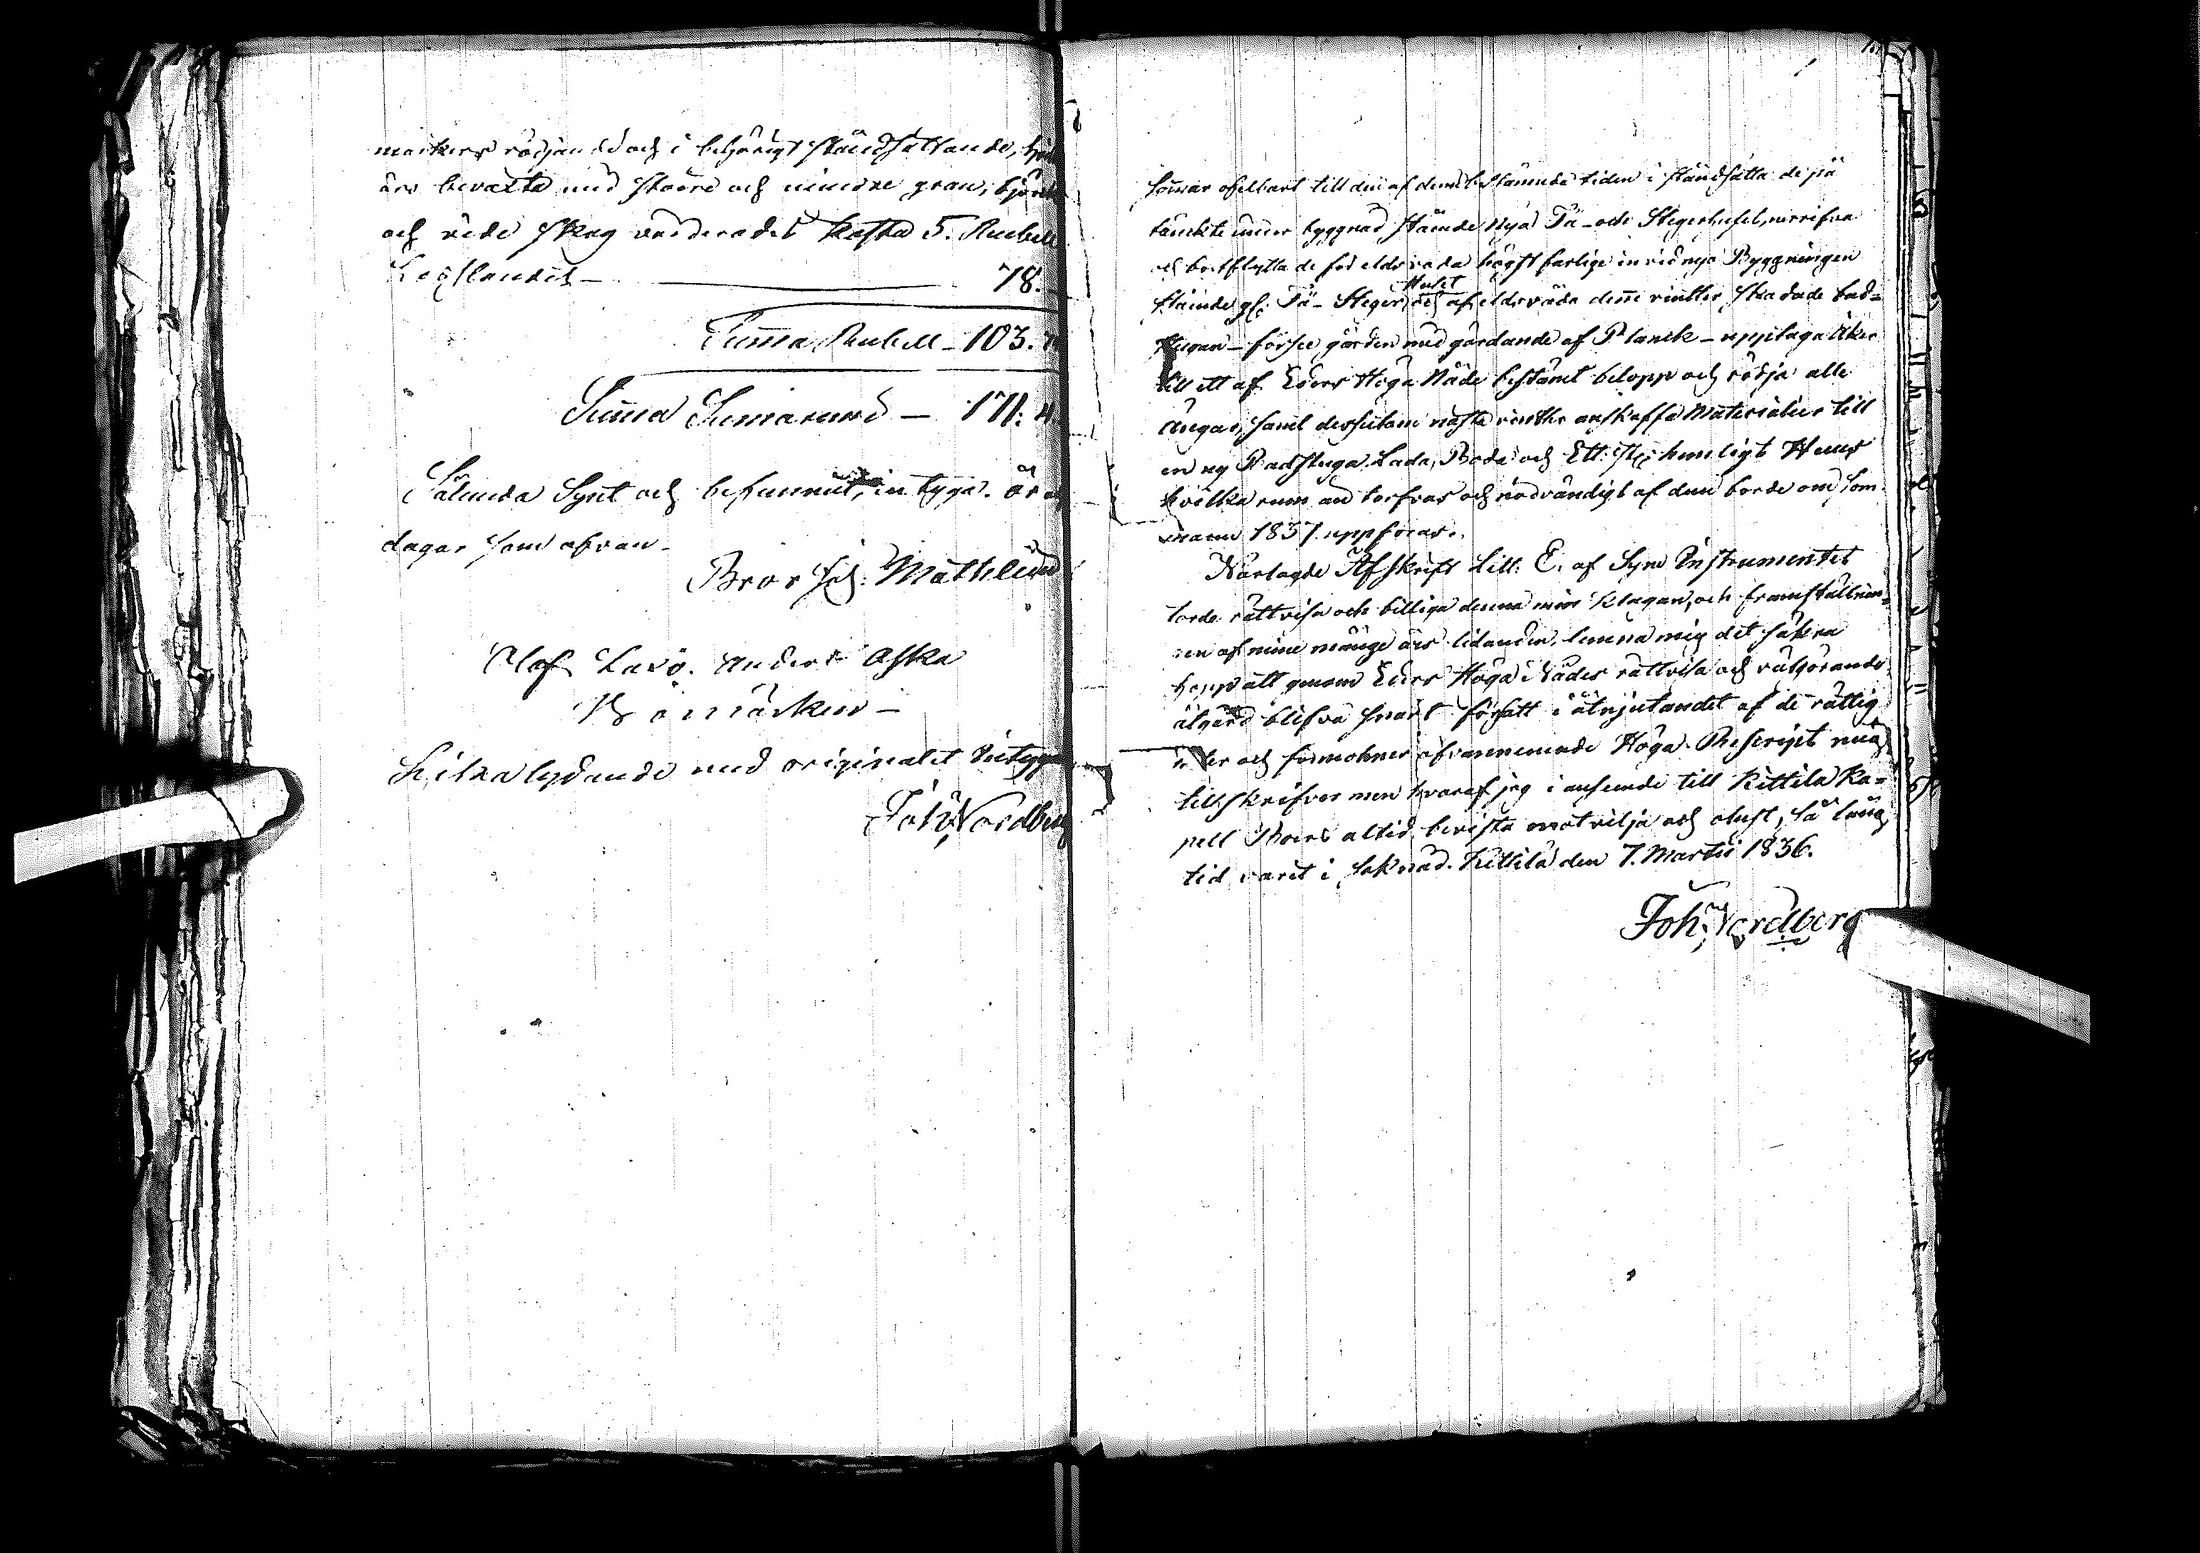 markers rödjande och i behörigt ståndsättande, hvilka
äro bevaxte med större och mindre gran, björk
och vide skog värderades kosta 5. Rubel
Geofslandet — 78.
Summa Rubell — 103.
Summa Sumarum — 171.
Sålunda Synt och befunnit, intyga. år och
dagar som ofvan.
Bror Joh: Mathlein
Olof Lars. Anders Aska
Bomärken —
Lika lydande med originalet intygar
Joh: Nordberg
sommar ofelbart till den af dem bestämde tiden i ståndsätta de på
tänckte under byggnad stånde nya Fä- och Stegerhuset, nerrifva
och bortflytta de för eldsvåda högst farlige invid nya Byggningen
Huset
stånde gl: Fä- Steger och af eldsvåda denne vintter skadade bad-
stugan — förse gården med gårdande af Planck — upptaga åker
till ett af Eders Höga Nåde bestämt belopp och rödja alle
Ängar, samt dessutom nästa vintter anskaffa Materialier till
en ny Badstuga. Lada, Boda och Ett st: hemligt Huus
hvilka rum än torfvas och nödvändigt af dem borde om som-
maren 1837. uppföras.
Närlagde Afskrift Litt: E. af Syne Instrumentet
torde rättvisa och billiga denna min klagan, och framställnin-
gen af mine månge års lidanden, lemna mig det säkra
hopp att genom Eders Höga Nådes rättvisa och rådförande
åtgärd blifva snart försatt i åtnjutandet af de rättig
heter och förmohner ofvannemnde Höga Rescript mig
tillskrifver men hvaraf jag i anseende till Kittilä Ka-
pell Boers altid bevista motvilja och olust, så lång
tid varit i saknad. Kittilä den 7. Martii 1836.
Joh: Nordberg